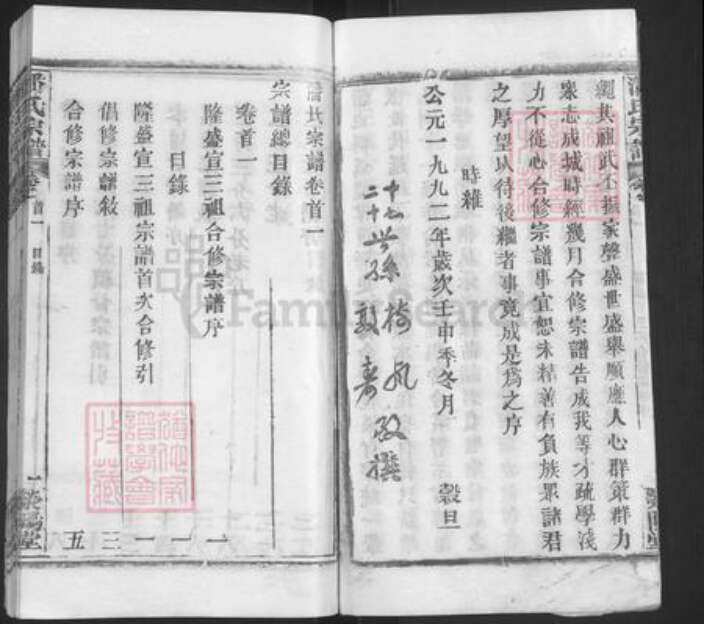 潘氏宗譜
繩其祖武丕振家聲盛世盛舉順應人心群策群力
衆志成城時經幾月合修宗譜告成我等才疏學淺
力不從心合修宗譜事宜恕未精善有負族眾諸君
之厚望以待後繼者事竟成是為之序
時維
公元一九九二年歲次壬申季冬月 榖旦
十七世孫 椅風
二十世孫 敦壽 敬撰
潘氏宗譜卷首一
宗譜總目錄
卷首一
隆盛宣三祖合修宗譜序 一
目錄 一
隆盛宣三祖宗譜首次合修引 一
倡修宗譜敘 三
合修宗譜序 五
潘氏宗譜
卷首一
目錄
一
榮陽堂
FamilySearch